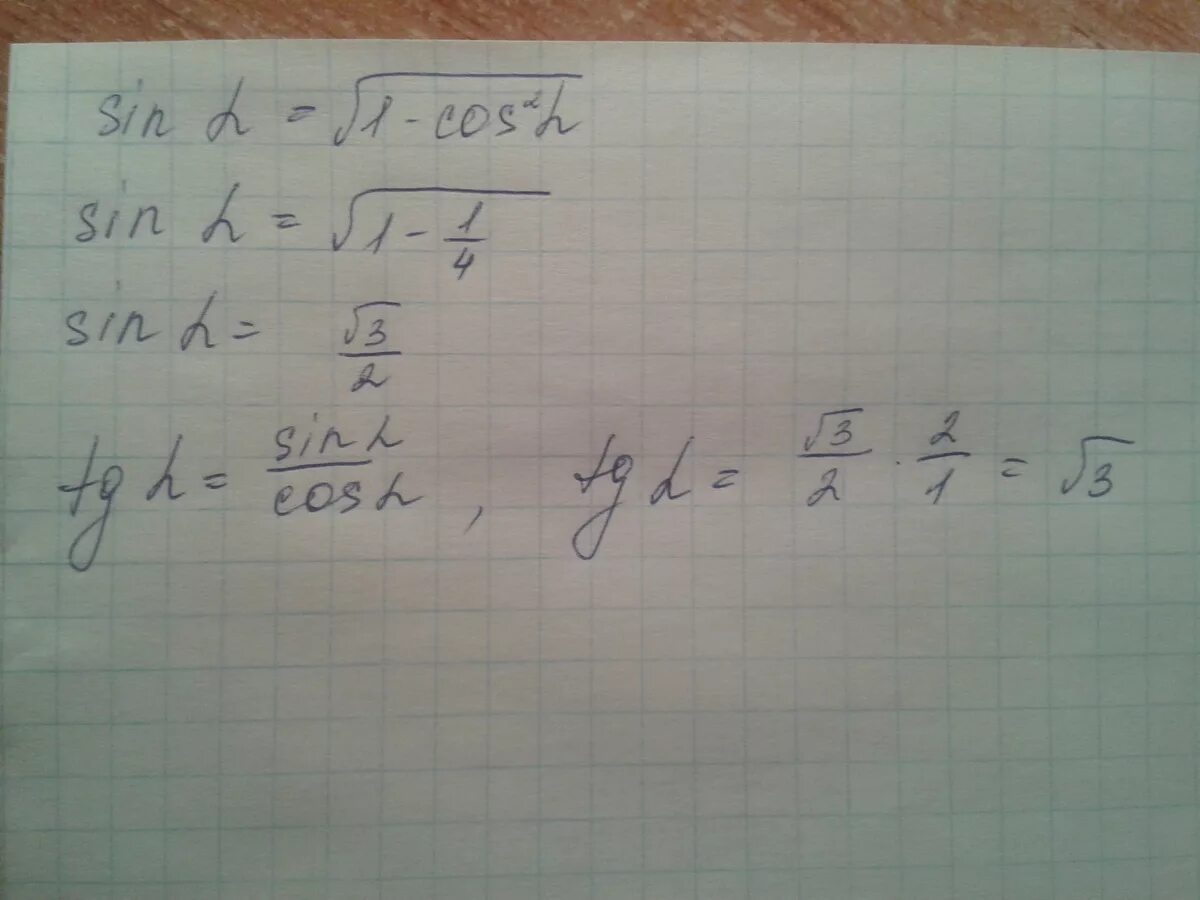 sin α = √(1 - cos²α)
sin α = √(1 - 1/4)
sin α = √3/2
tg α = sin α/cos α, tg α = √3/2 · 2/1 = √3